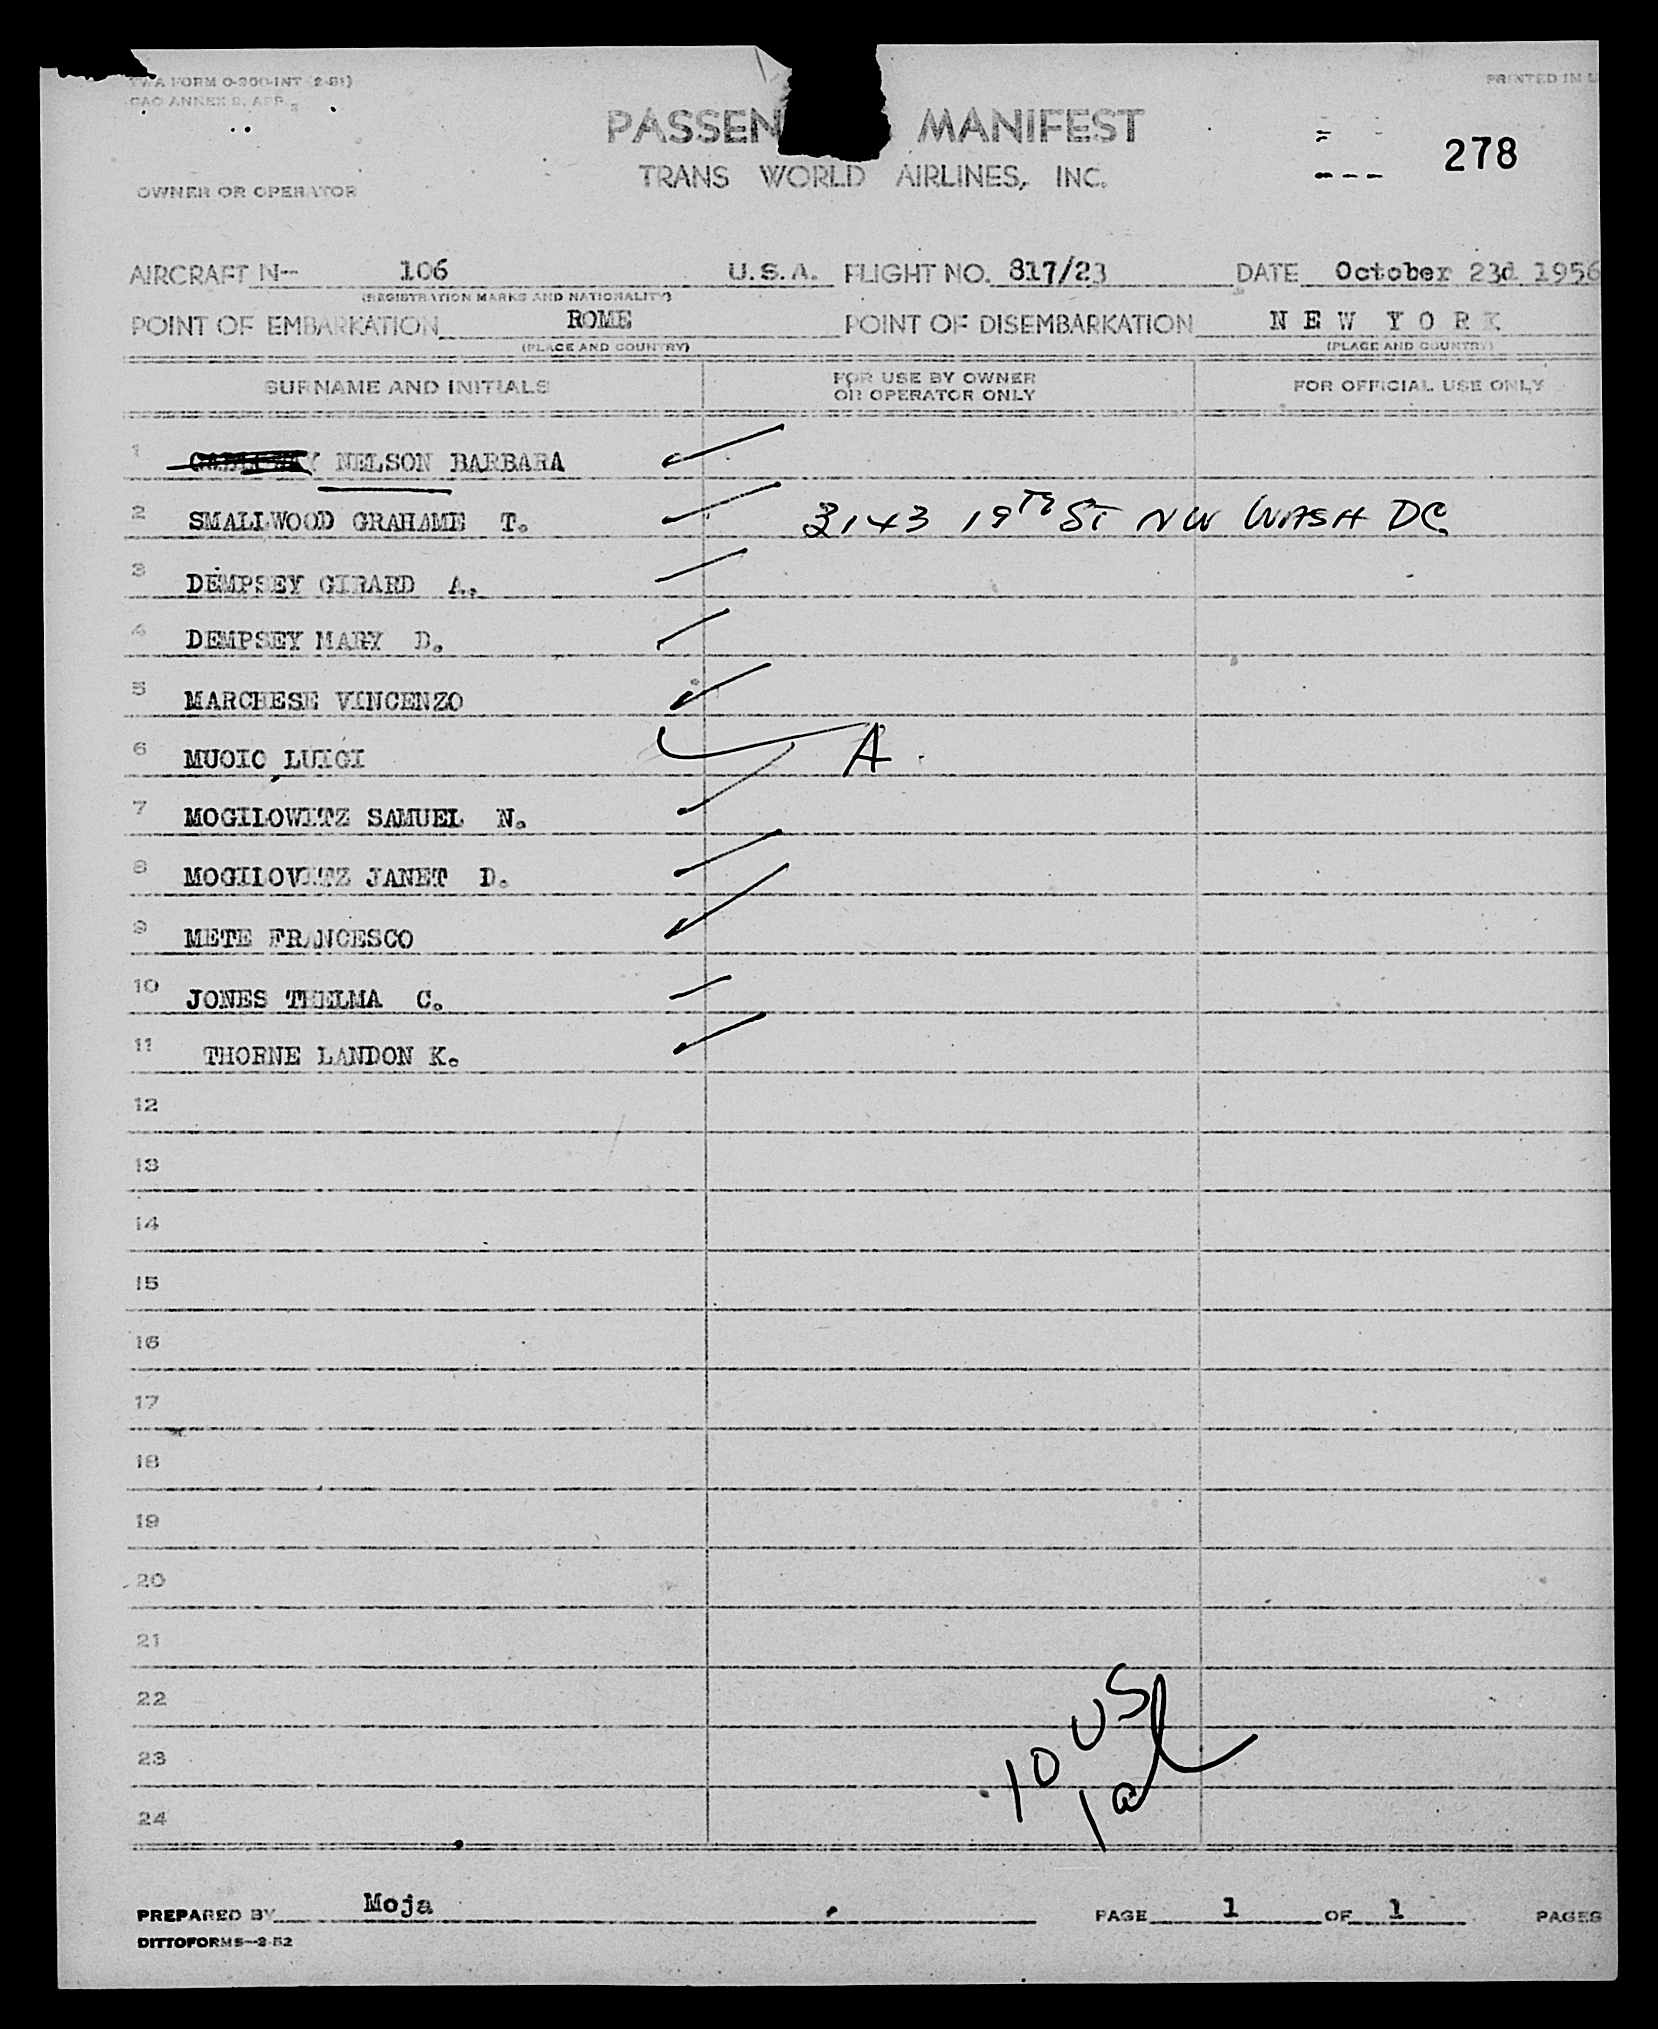 TWA FORM O-300-INT (2-51) PRINTED IN U
CAO ANNEX 9, APP. 3
PASSEN MANIFEST
278
TRANS WORLD AIRLINES, INC.
OWNER OR OPERATOR
AIRCRAFT N-- 106 U.S.A. FLIGHT NO. 817/23 DATE October 23d 1956
(REGISTRATION MARKS AND NATIONALITY)
POINT OF EMBARKATION ROME POINT OF DISEMBARKATION NEW YORK
(PLACE AND COUNTRY) (PLACE AND COUNTRY)
SURNAME AND INITIALS FOR USE BY OWNER OR OPERATOR ONLY FOR OFFICIAL USE ONLY
1 NELSON BARBARA
2 SMALLWOOD GRAHAME T. 3143 19TH ST NW WASH DC
3 DEMPSEY GIRARD A.
4 DEMPSEY MARY D.
5 MARCHESE VINCENZO
6 MUOIO LUIGI A
7 MOGILOWITZ SAMUEL N.
8 MOGILOWITZ JANET D.
9 METE FRANCESCO
10 JONES THELMA C.
11 THORNE LANDON K.
12
13
14
15
16
17
18
19
20
21
22
23
24
10 US
1 al
PREPARED BY Moja PAGE 1 OF 1 PAGES
DITTOFORMS--2-52